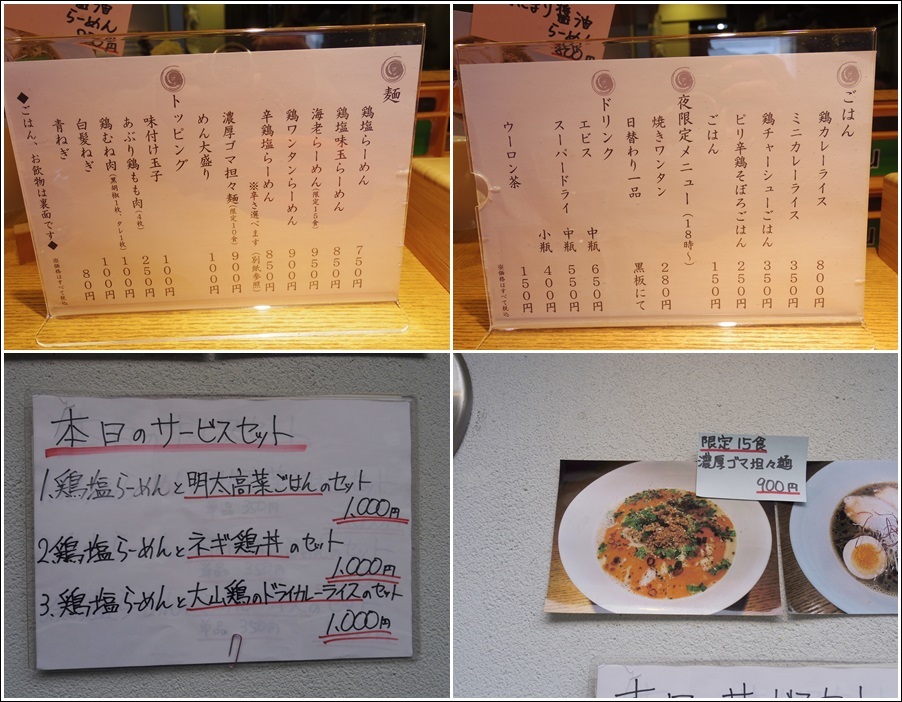 醤油
らーめん
麺
鶏塩らーめん 750円
鶏塩味玉らーめん 850円
海老らーめん(限定15食) 950円
鶏ワンタンらーめん 900円
辛鶏塩らーめん 850円
※辛さ選べます(別紙参照)
濃厚ゴマ担々麺(限定10食) 900円
めん大盛り 100円
トッピング
味付け玉子 100円
あぶり鶏もも肉(4枚) 250円
鶏むね肉(黒胡椒1枚、タレ1枚) 100円
白髪ねぎ 100円
青ねぎ 80円
◆ごはん、お飲物は裏面です◆
※価格はすべて税込
醤油
らーめん
ごはん
鶏カレーライス 800円
ミニカレーライス 350円
鶏チャーシューごはん 350円
ピリ辛鶏そぼろごはん 250円
ごはん 150円
夜限定メニュー(18時~)
焼きワンタン 280円
日替わり一品 黒板にて
ドリンク
エビス 中瓶 650円
スーパードライ 中瓶 550円
小瓶 400円
ウーロン茶 150円
※価格はすべて税込
本日のサービスセット
1.鶏塩らーめんと明太高菜ごはんのセット
1.000円
2.鶏塩らーめんとネギ鶏丼のセット
1.000円
3.鶏塩らーめんと大山鶏のドライカレーライスのセット
1.000円
限定15食
濃厚ゴマ担々麺
900円